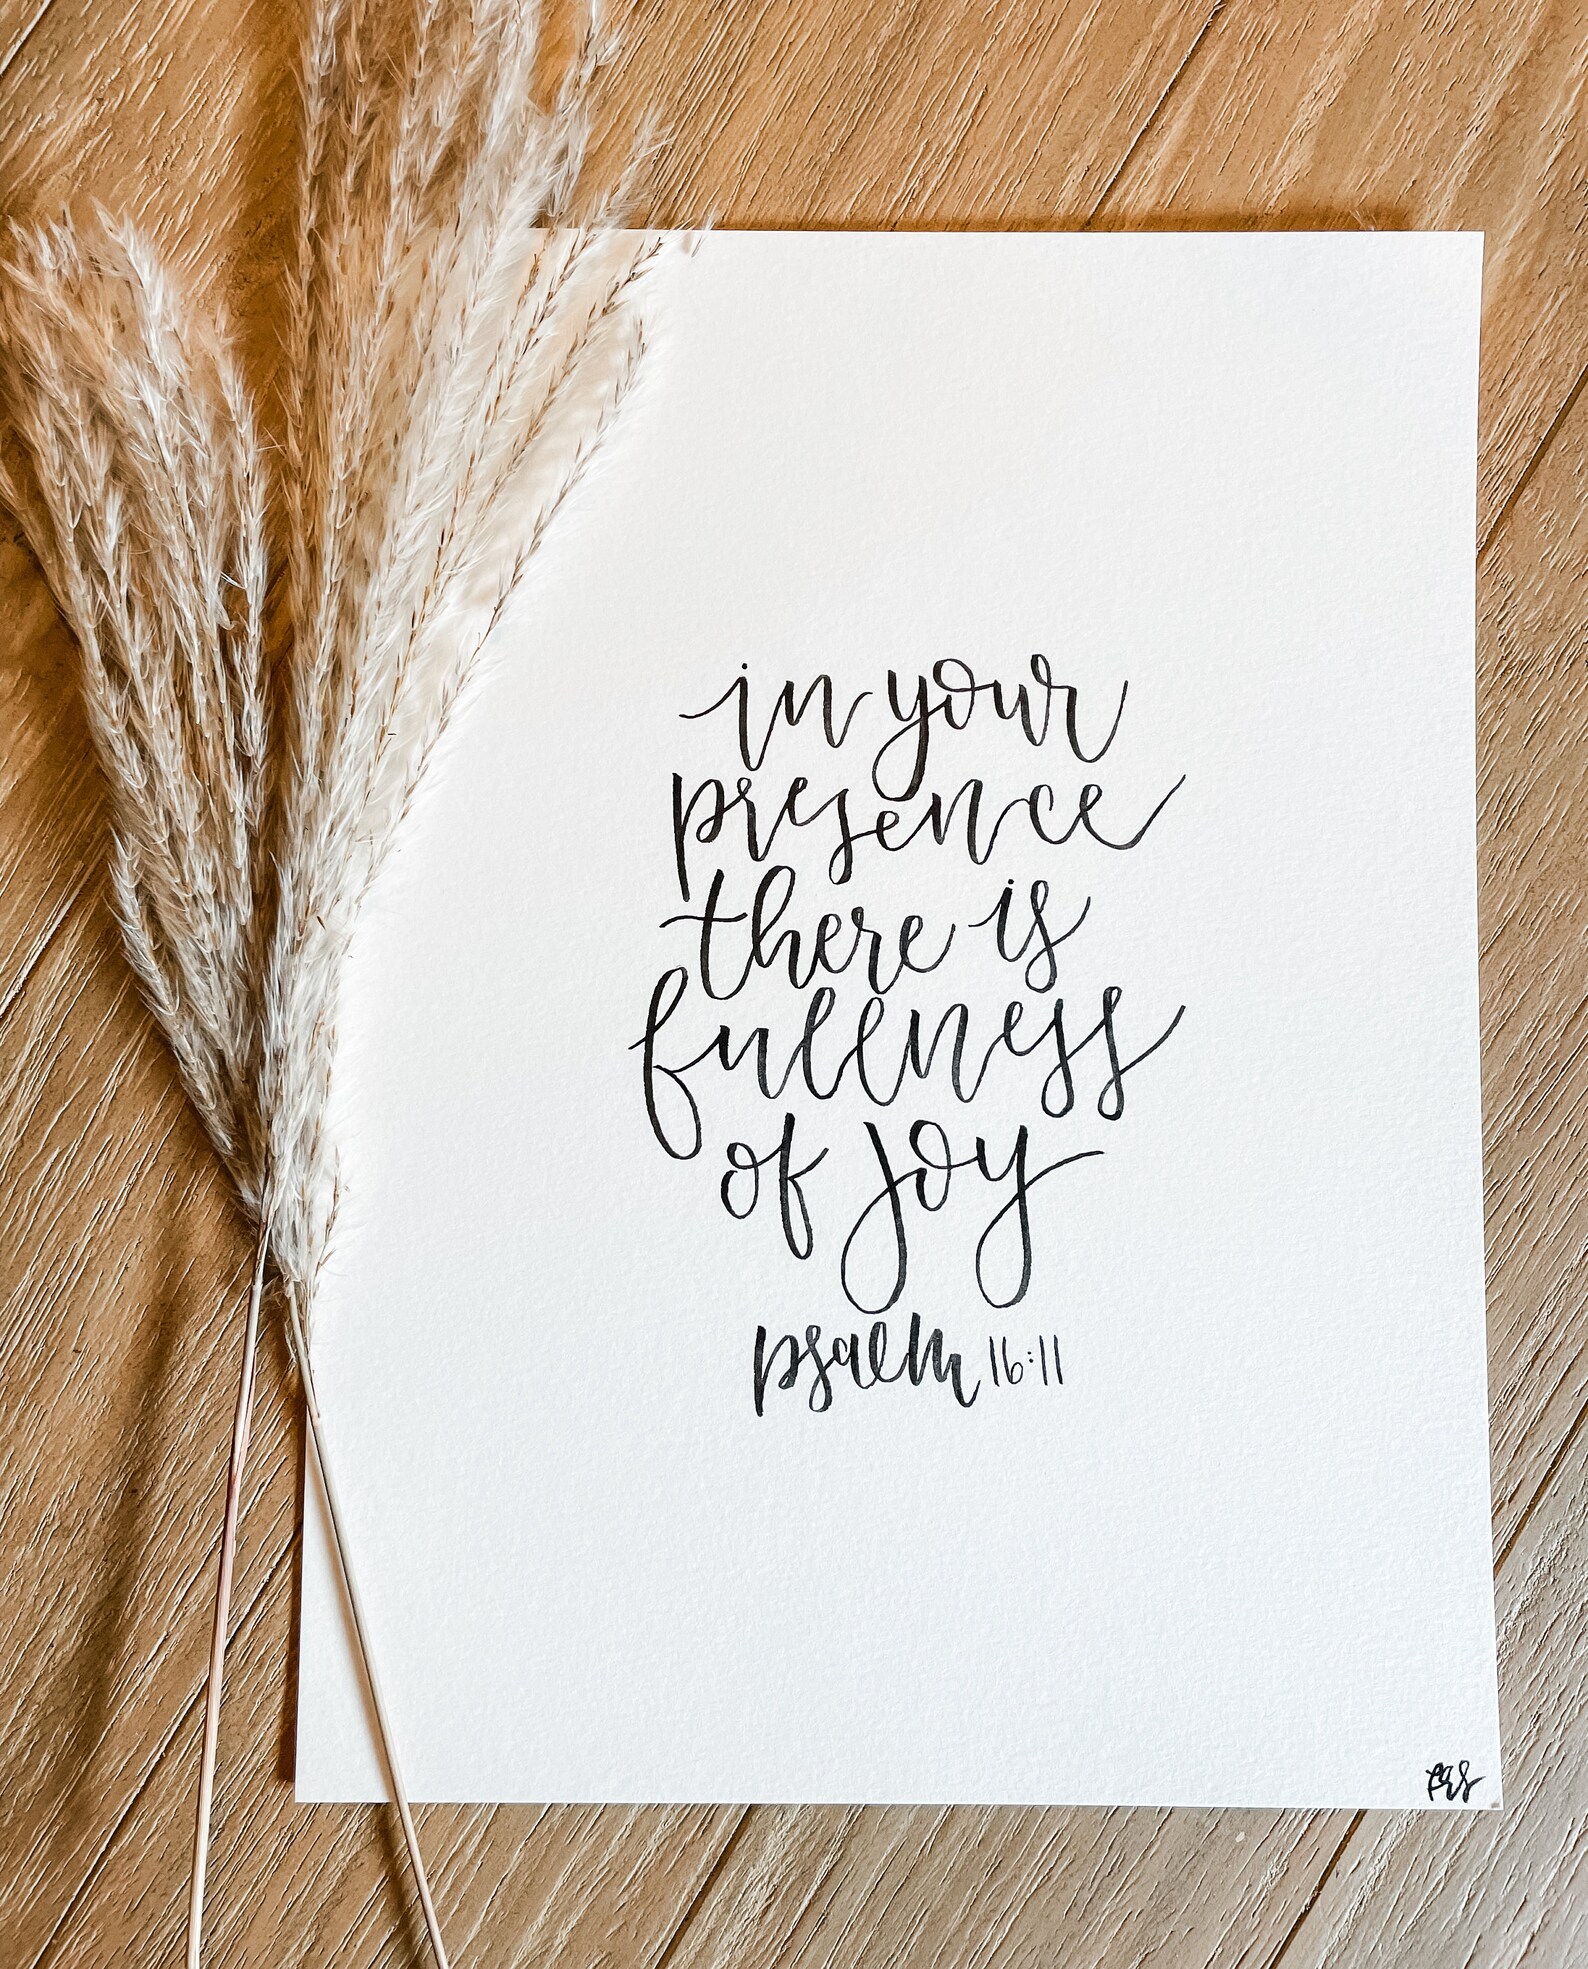 in your
presence
there is
fullness
of joy
psalm 16:11